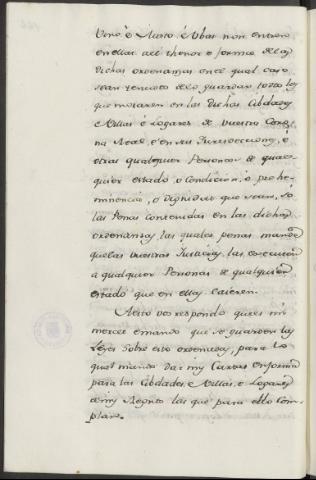 Vino è Mosto è Ubas non entren
en ellas al thenor è forma de las
dichas ordenanzas en el qual caso
sean tenudos de lo guardar todos los
que moraren en las dichas Cibdades
è Villas è Logares de vuestra Coro-
na Real è en sus Jurisdicciones, è
otras qualquier Personas de qual-
quier estado o Condicion, o prehe-
minencia, o Dignidad que sean, só
las Penas contenidas en las dichas
ordenanzas, las quales penas mandò
que las vuestras Justicias, las executen
a qualquier Personas de qualquier
estado que en ellas caieren.
A esto vos respondo que es mi
merced è mando que se guarden las
Leyes sobre esto ordenadas, para lo
qual mando dar my Cartas en forma
para las Cibdades è Villas, è Logares
de my Regnos las que para ello com-
plan.